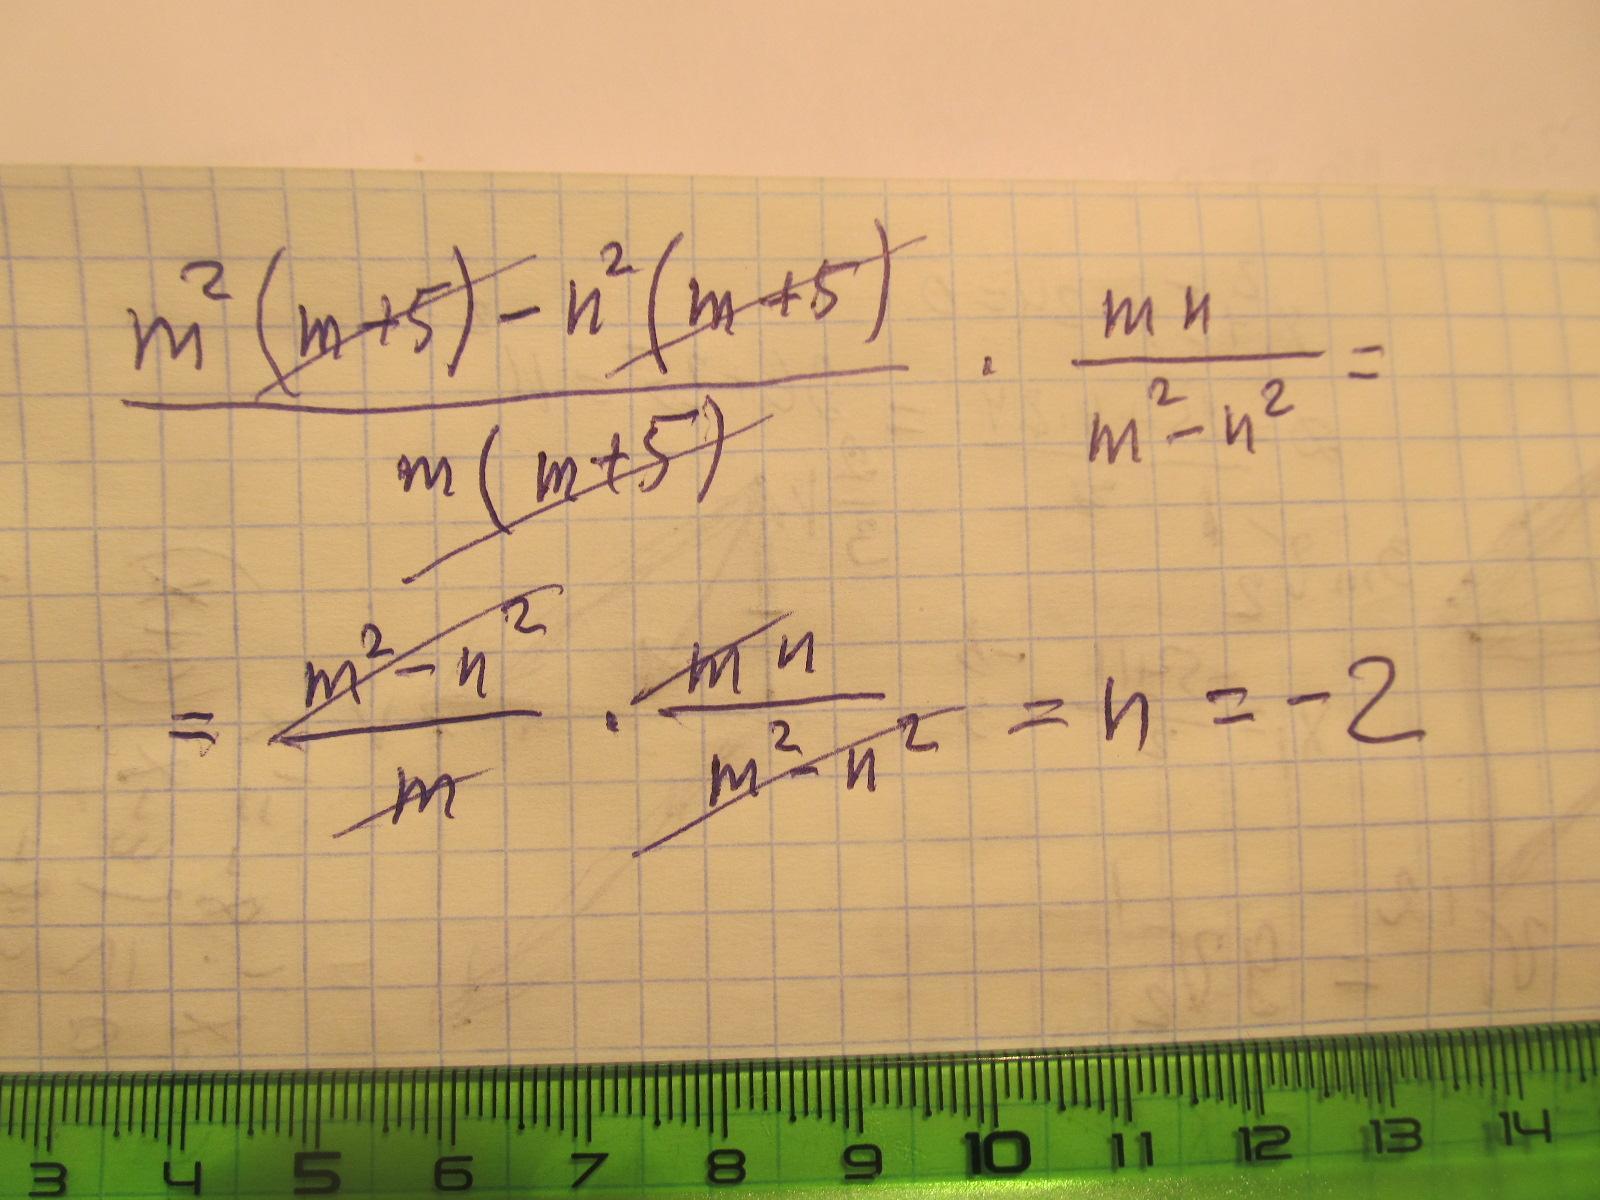 m²(m+5) - n²(m+5) / m(m+5) · mn / m² - n² =
= m² - n² / m · mn / m² - n² = n = -2
3 4 5 6 7 8 9 10 11 12 13 14